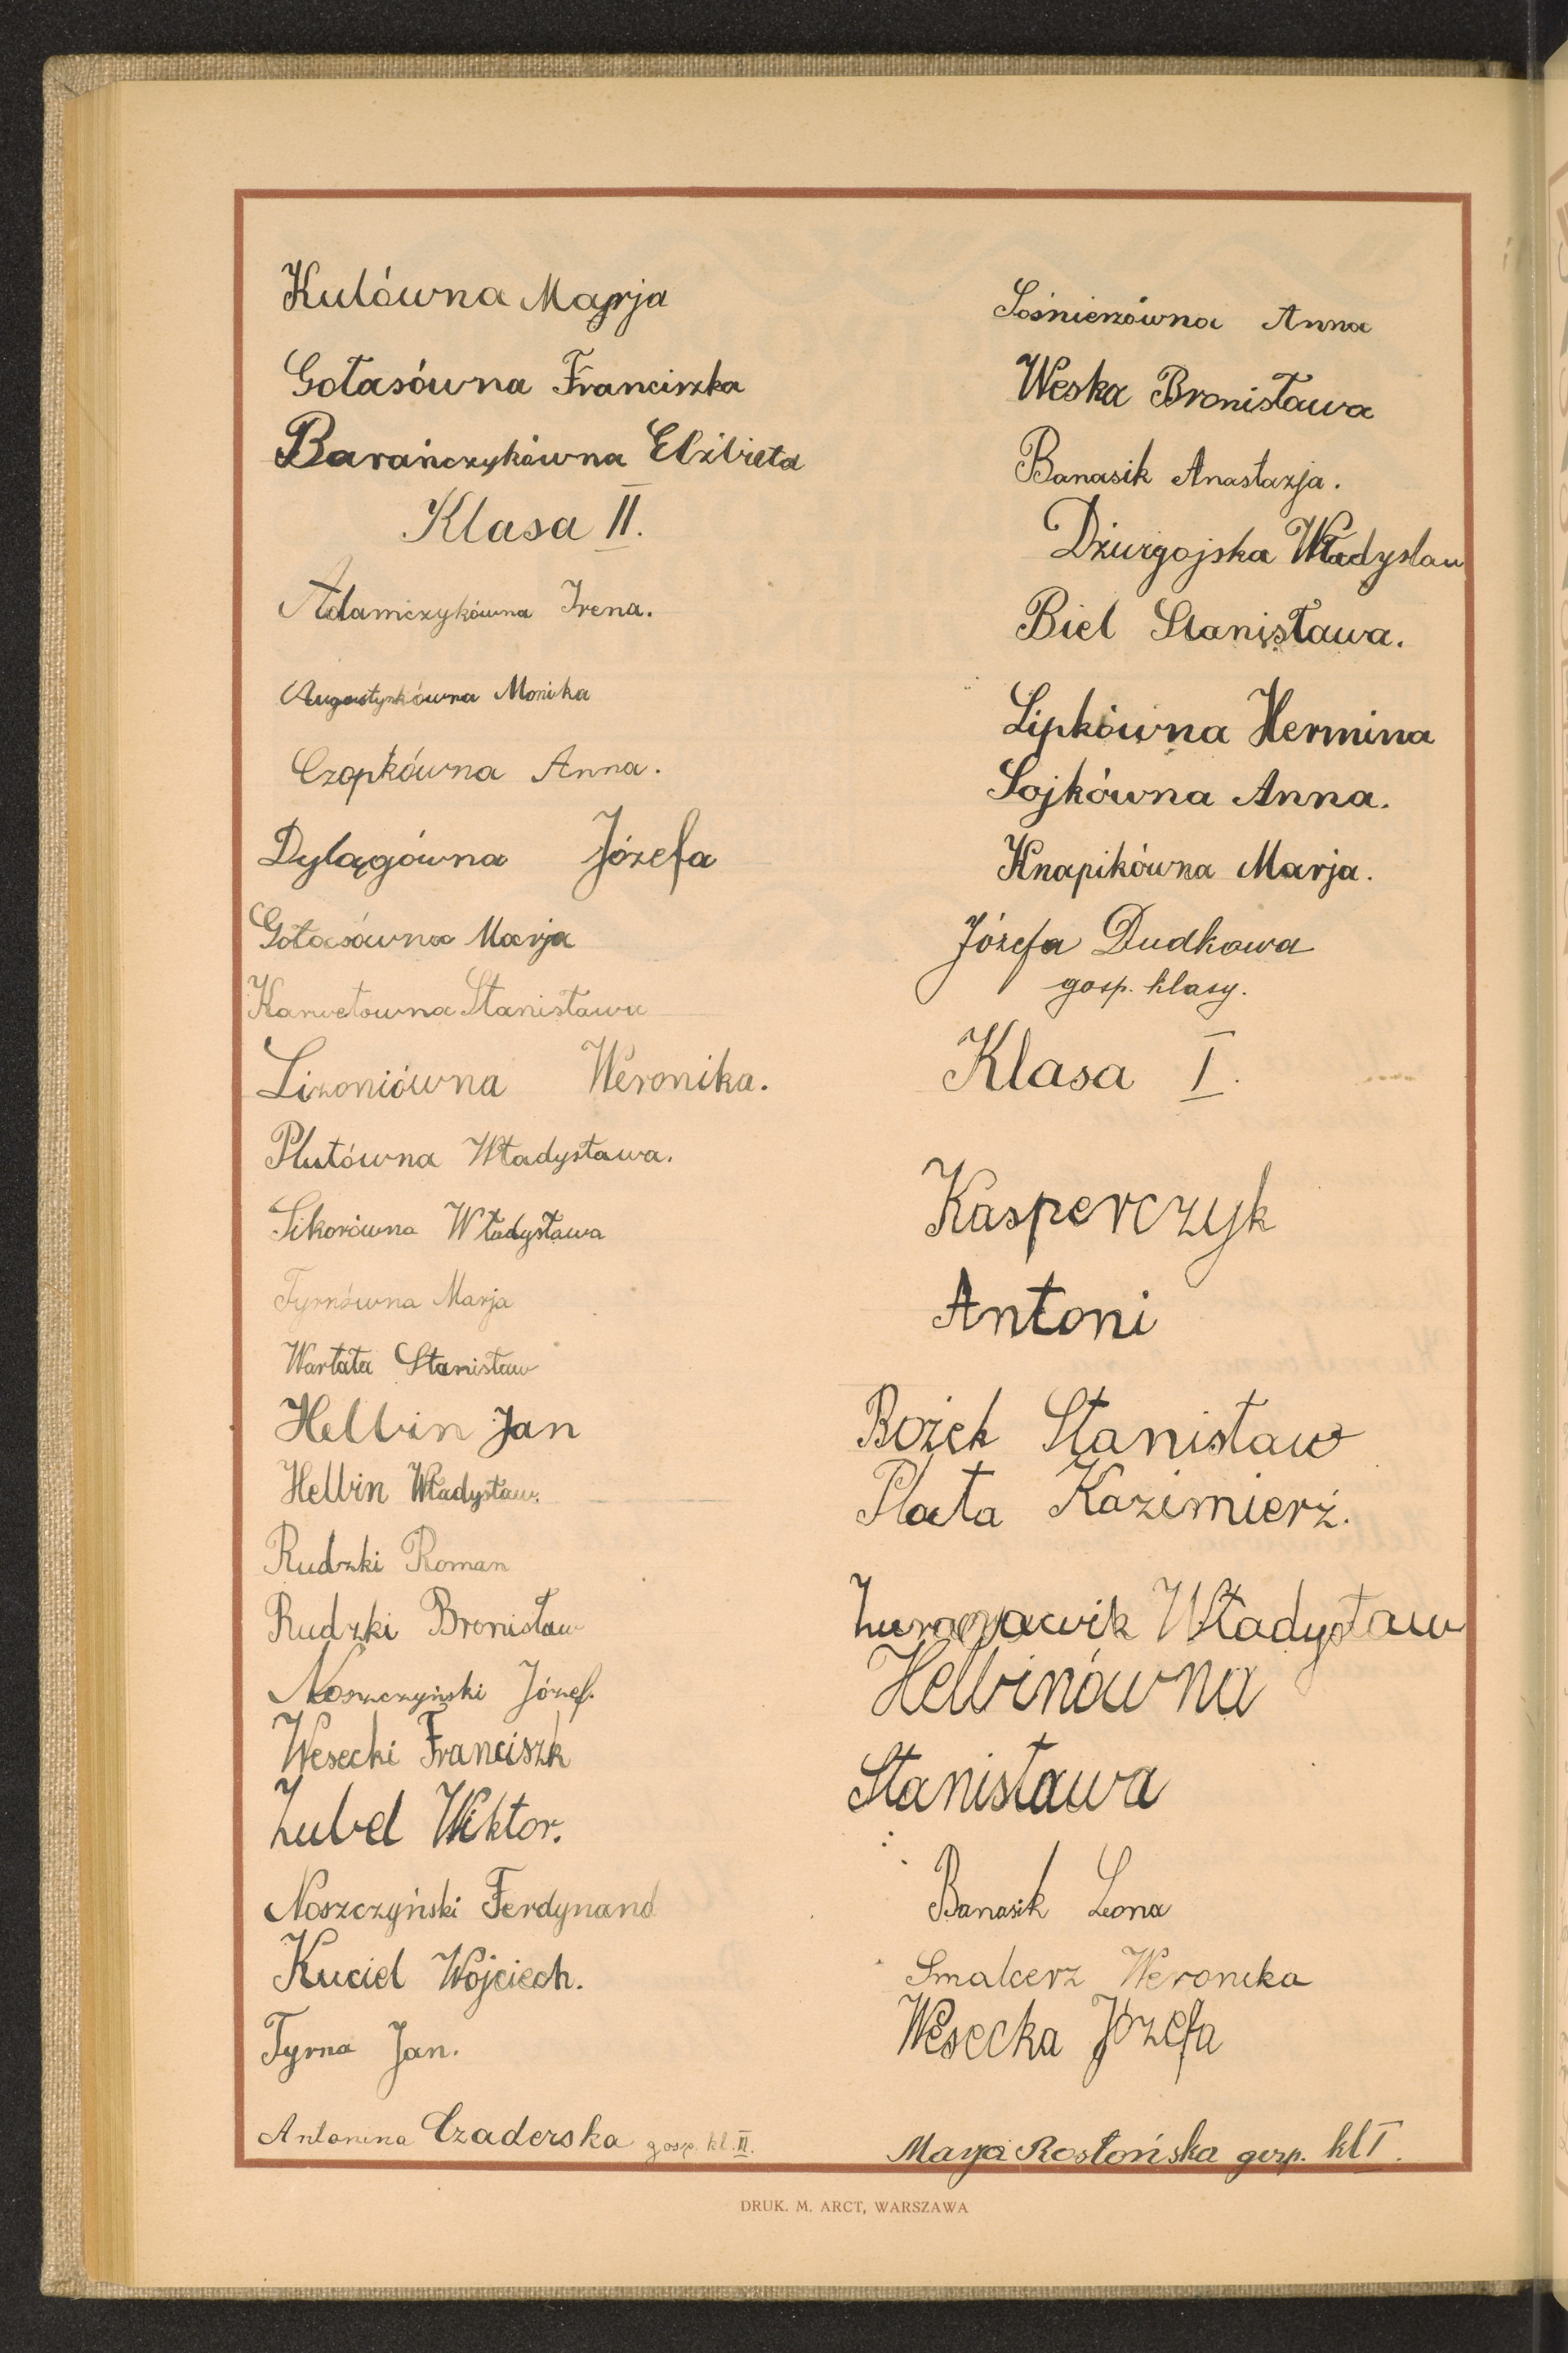 Kulówna Marja
Gołasówna Franciszka
Barańczykówna Elżbieta
Klasa II.
Adamczykówna Irena.
Augustynkówna Monika
Czopkówna Anna.
Dylągówna Józefa
Gołasówna Marja
Karwetowna Stanisława
Lizoniówna Weronika.
Plutówna Władysława.
Sikorówna Władysława
Tyrnówna Marja
Wartata Stanisław
Helbin Jan
Helbin Władysław.
Rudzki Roman
Rudzki Bronisław
Noszczyński Józef.
Wesecki Franciszk
Zubel Wiktor.
Noszczyński Ferdynand
Kuciel Wojciech.
Tyrna Jan.
Antonina Czaderska gosp. kl. II.
Sośnierzówna Anna
Weska Bronisława
Banasik Anastazja.
Dziurgojska Władysław
Biel Stanisława.
Lipkówna Hermina
Sojkówna Anna.
Knapikówna Marja.
Józefa Dudkowa
gosp. klasy.
Klasa I.
Kasperczyk
Antoni
Bożek Stanisław
Plata Kazimierz.
Władysław
Helbinówna
Stanisława
Banasik Leona
Smalcerz Weronika
Wesecka Józefa
Marja Rosłońska gosp. kl I.
DRUK. M. ARCT, WARSZAWA